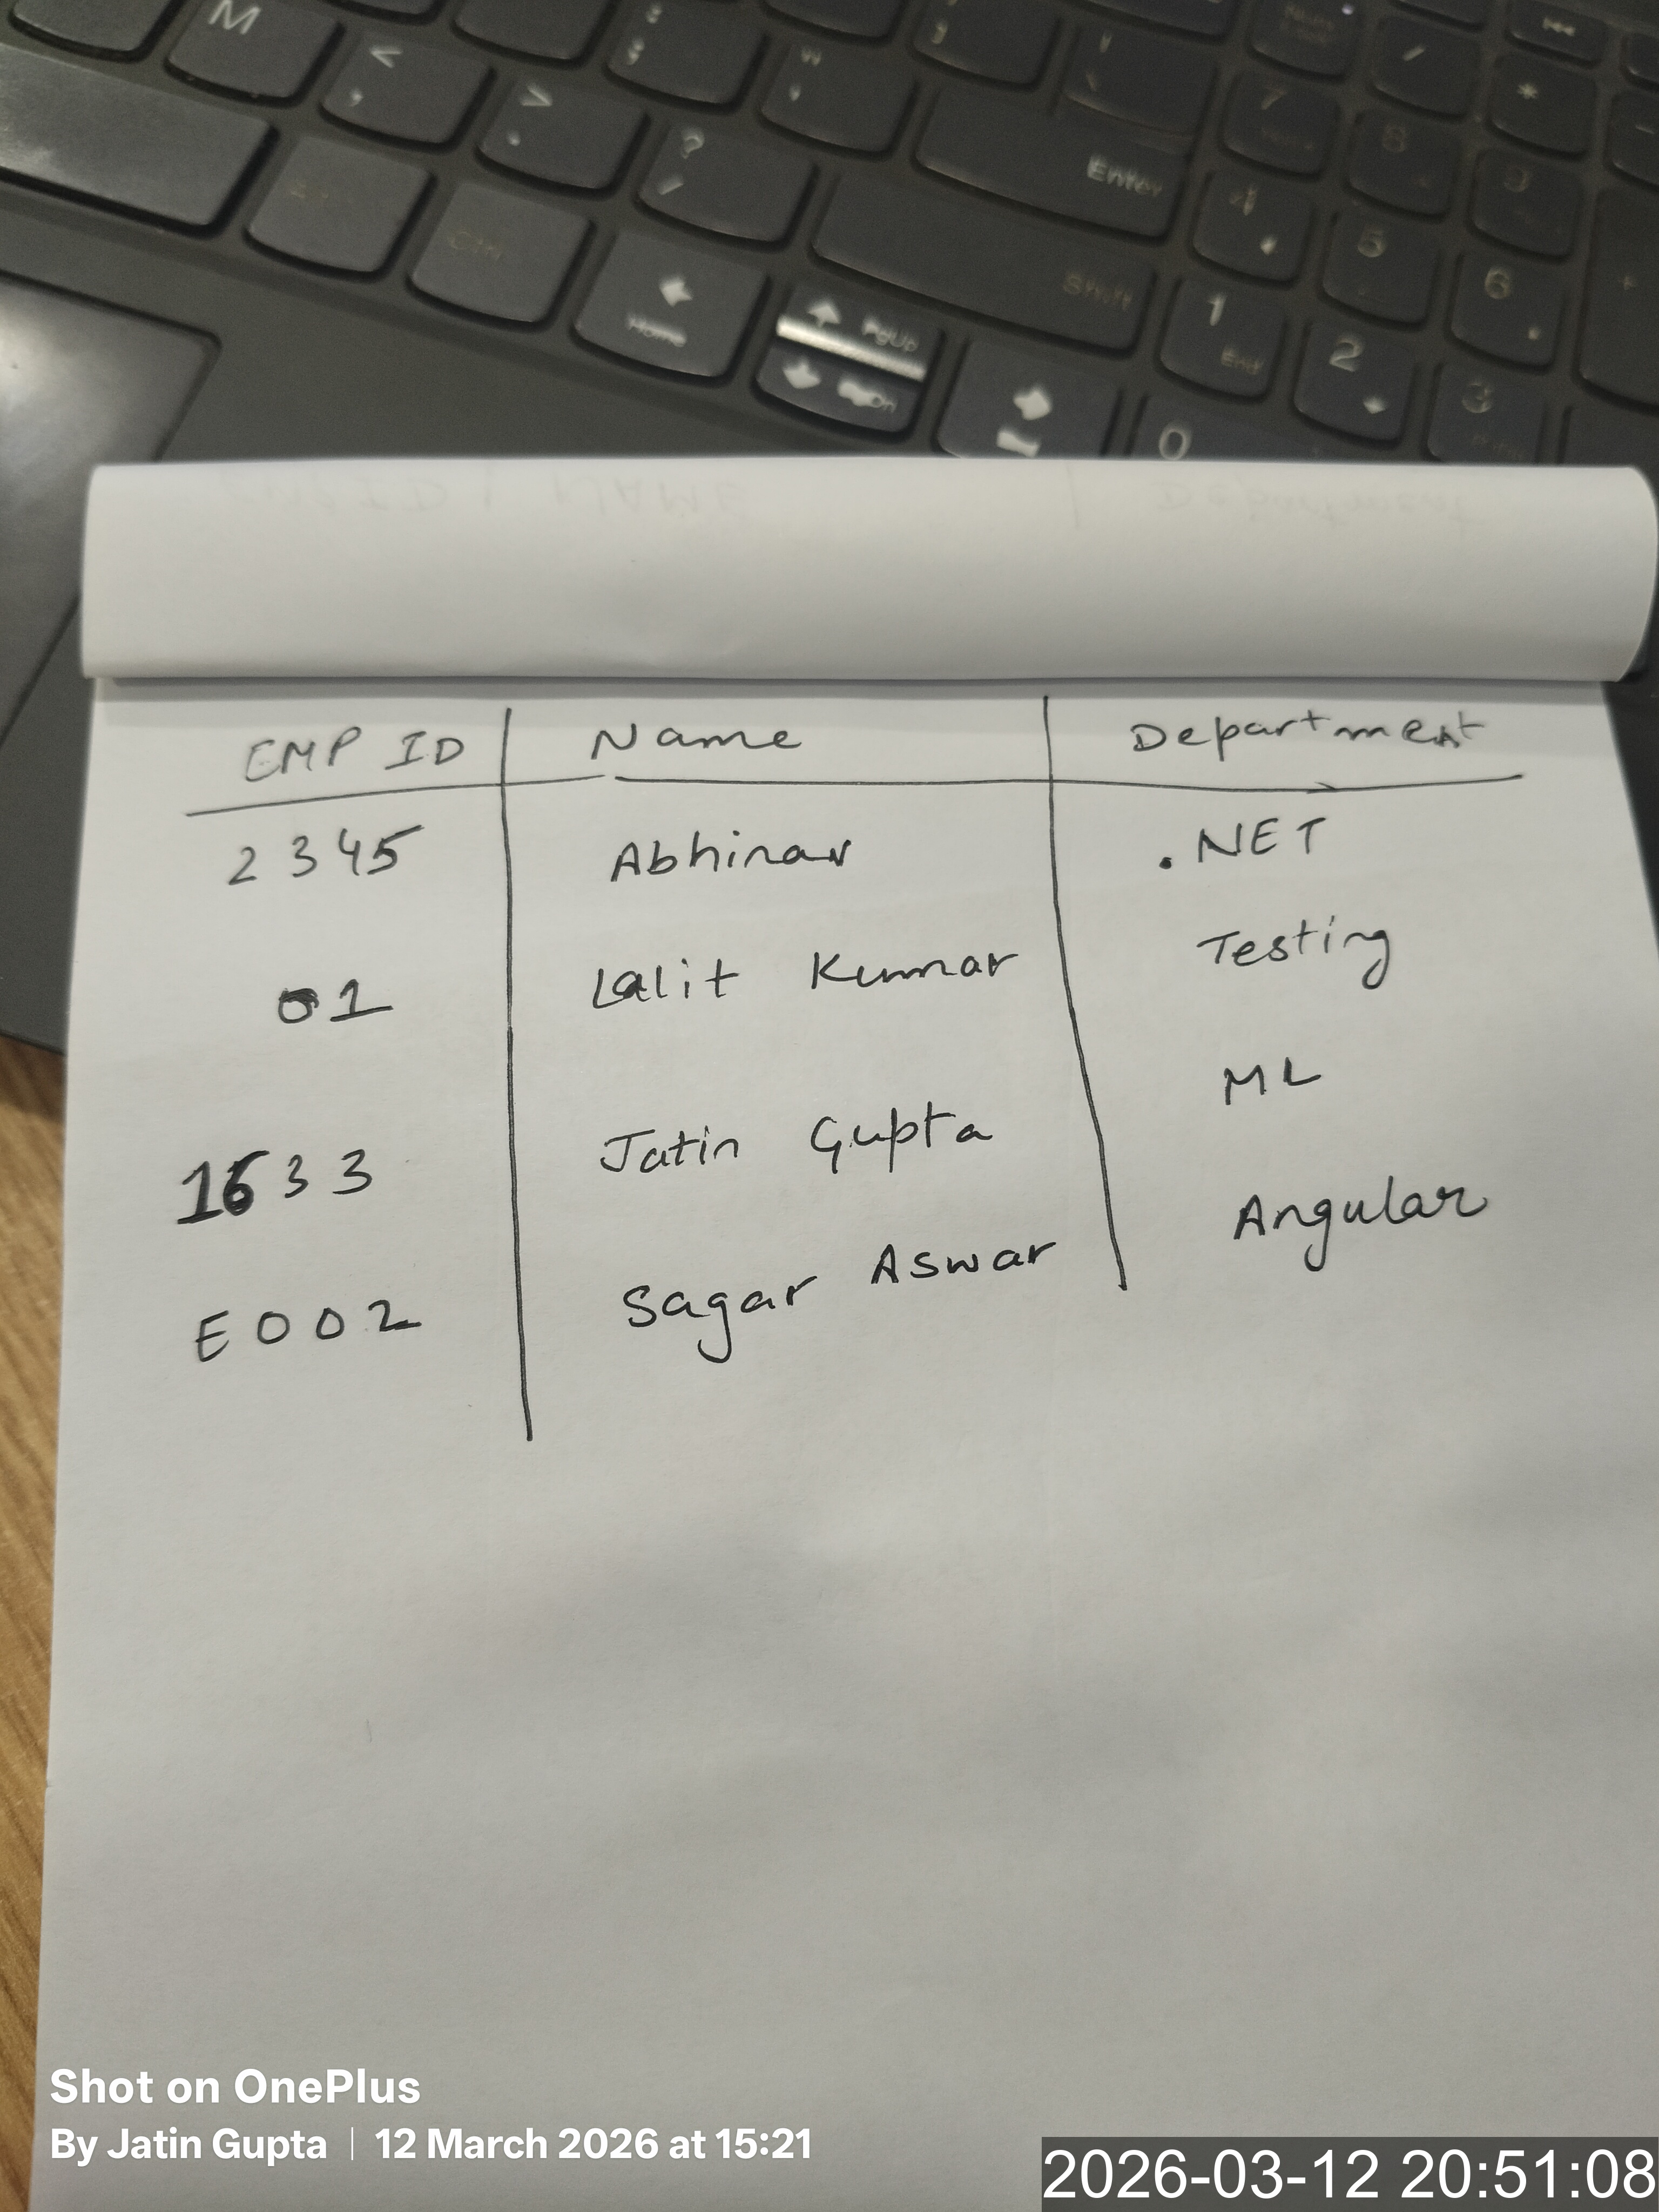 M
< ,
> .
? /
Enter
Shift
Home
PgUp
PgDn
7
8
9
4
5
6
1 End
2
3
0
*
EMP ID Name Department
2345 Abhinav .NET
01 Lalit Kumar Testing
1633 Jatin Gupta ML
E002 Sagar Aswar Angular
Shot on OnePlus
By Jatin Gupta | 12 March 2026 at 15:21
2026-03-12 20:51:08